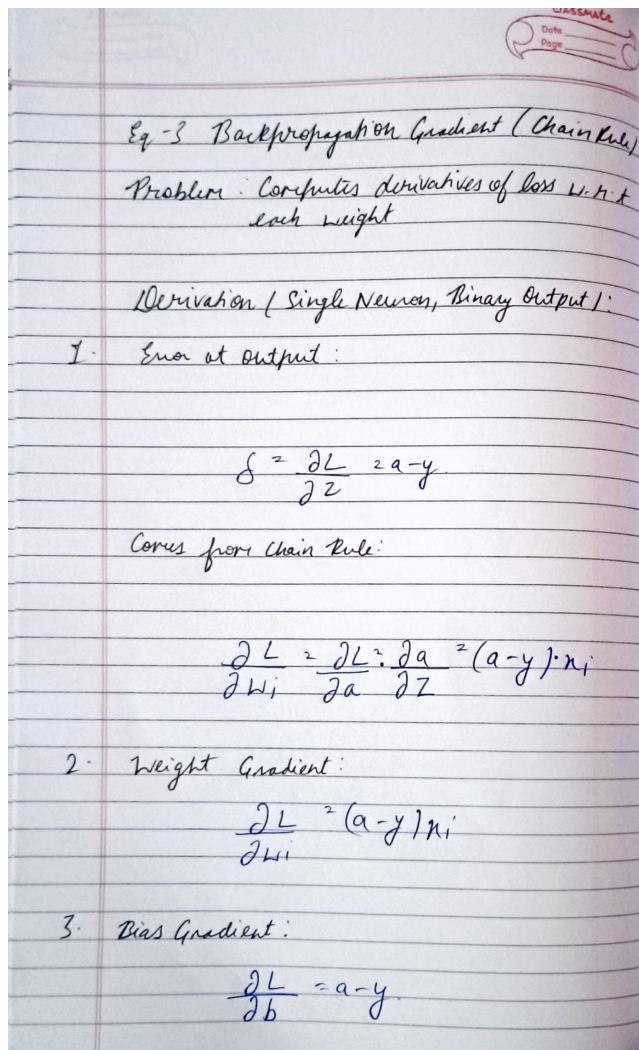 classmate
Date
Page
Eq-3 Backpropagation Gradient (Chain Rule)
Problem: Computes derivatives of loss w.r.t
each weight
Derivation (Single Neuron, Binary Output):
1. Error at output:
δ = ∂L/∂z = a-y
Comes from Chain Rule:
∂L/∂wi = ∂L/∂a · ∂a/∂z = (a-y)·xi
2. Weight Gradient:
∂L/∂wi = (a-y)xi
3. Bias Gradient:
∂L/∂b = a-y